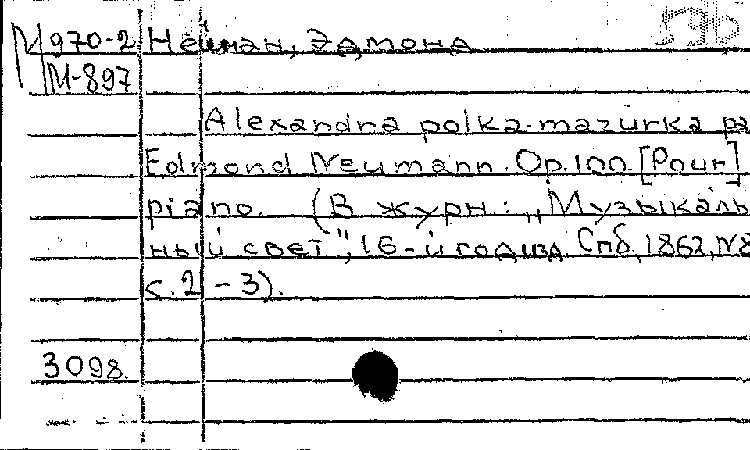 М970-2 Нейман, Эдмонд
М-897
Alexandra polka-mazurka pa
Edmond Neumann. Op.100. [Pour]
piano. (В журн: „Музыкаль
ный свет", 16-й год изд. Спб, 1862, №8
с. 2 - 3).
3098.